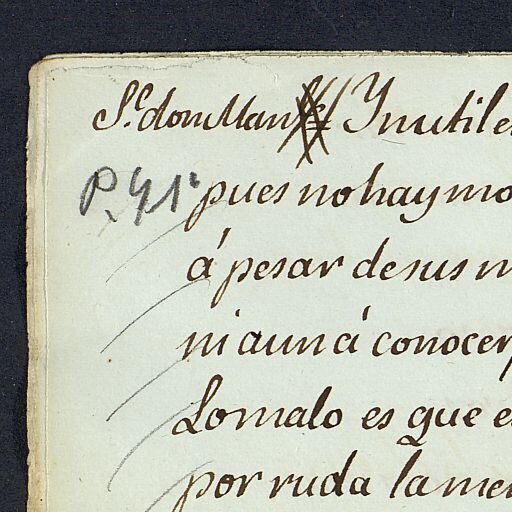 Sr. don Man Ynutile
P. 41 pues no hay mo
á pesar de sus m
ni aun á conocer
Lo malo es que e
por ruda la me